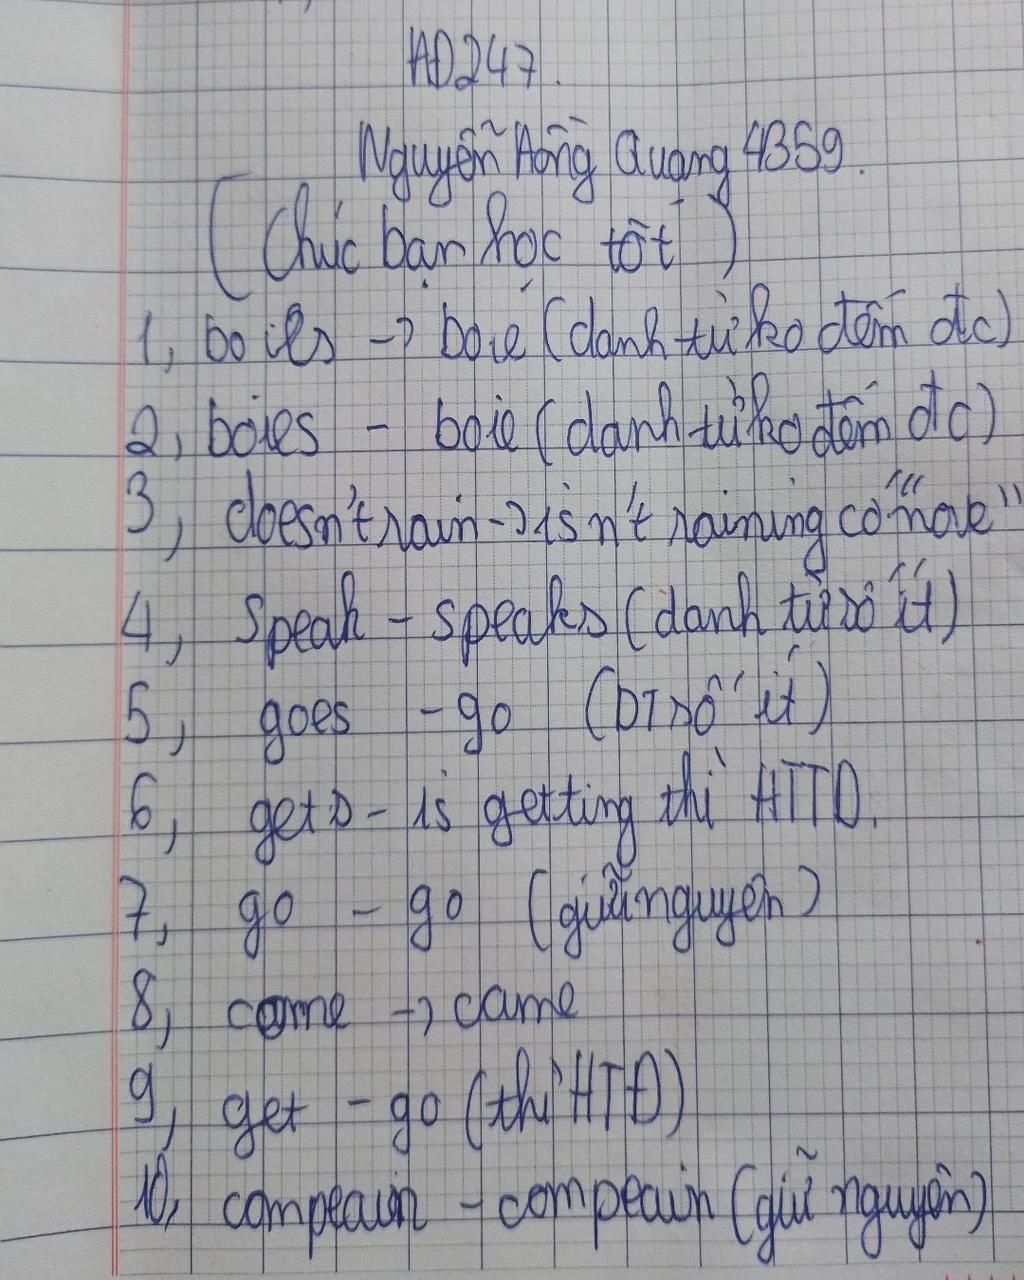 AD247.
Nguyễn Hồng Quang 4359.
(Chúc bạn học tốt)
1, boiles → boie (danh từ ko đếm đc)
2, boies - boie (danh từ ko đếm đc)
3, doesn't rain → isn't raining có "now"
4, speak - speaks (danh từ số ít)
5, goes - go (DT số ít)
6, gets - is getting thì HTTD.
7, go - go (giữ nguyên)
8, come → came
9, get - go (thì HTĐ)
10, compeain - compeain (giữ nguyên)